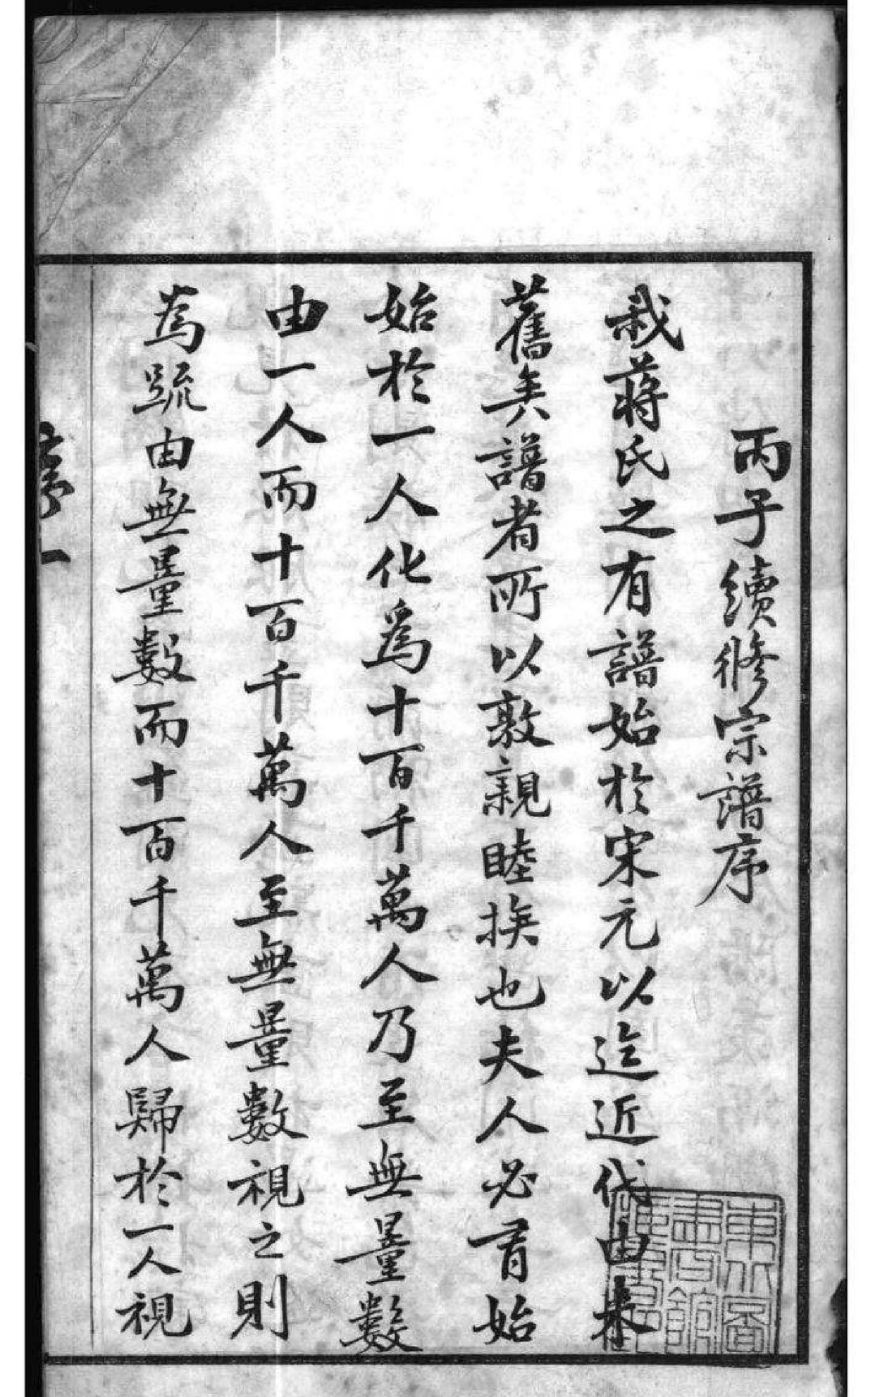 丙子續修宗譜序
我蔣氏之有譜始於宋元以迄近代由來
舊矣譜者所以敦親睦族也夫人必有始
始於一人化爲十百千萬人乃至無量數
由一人而十百千萬人至無量數視之則
爲䟽由無量數而十百千萬人歸於一人視
序一